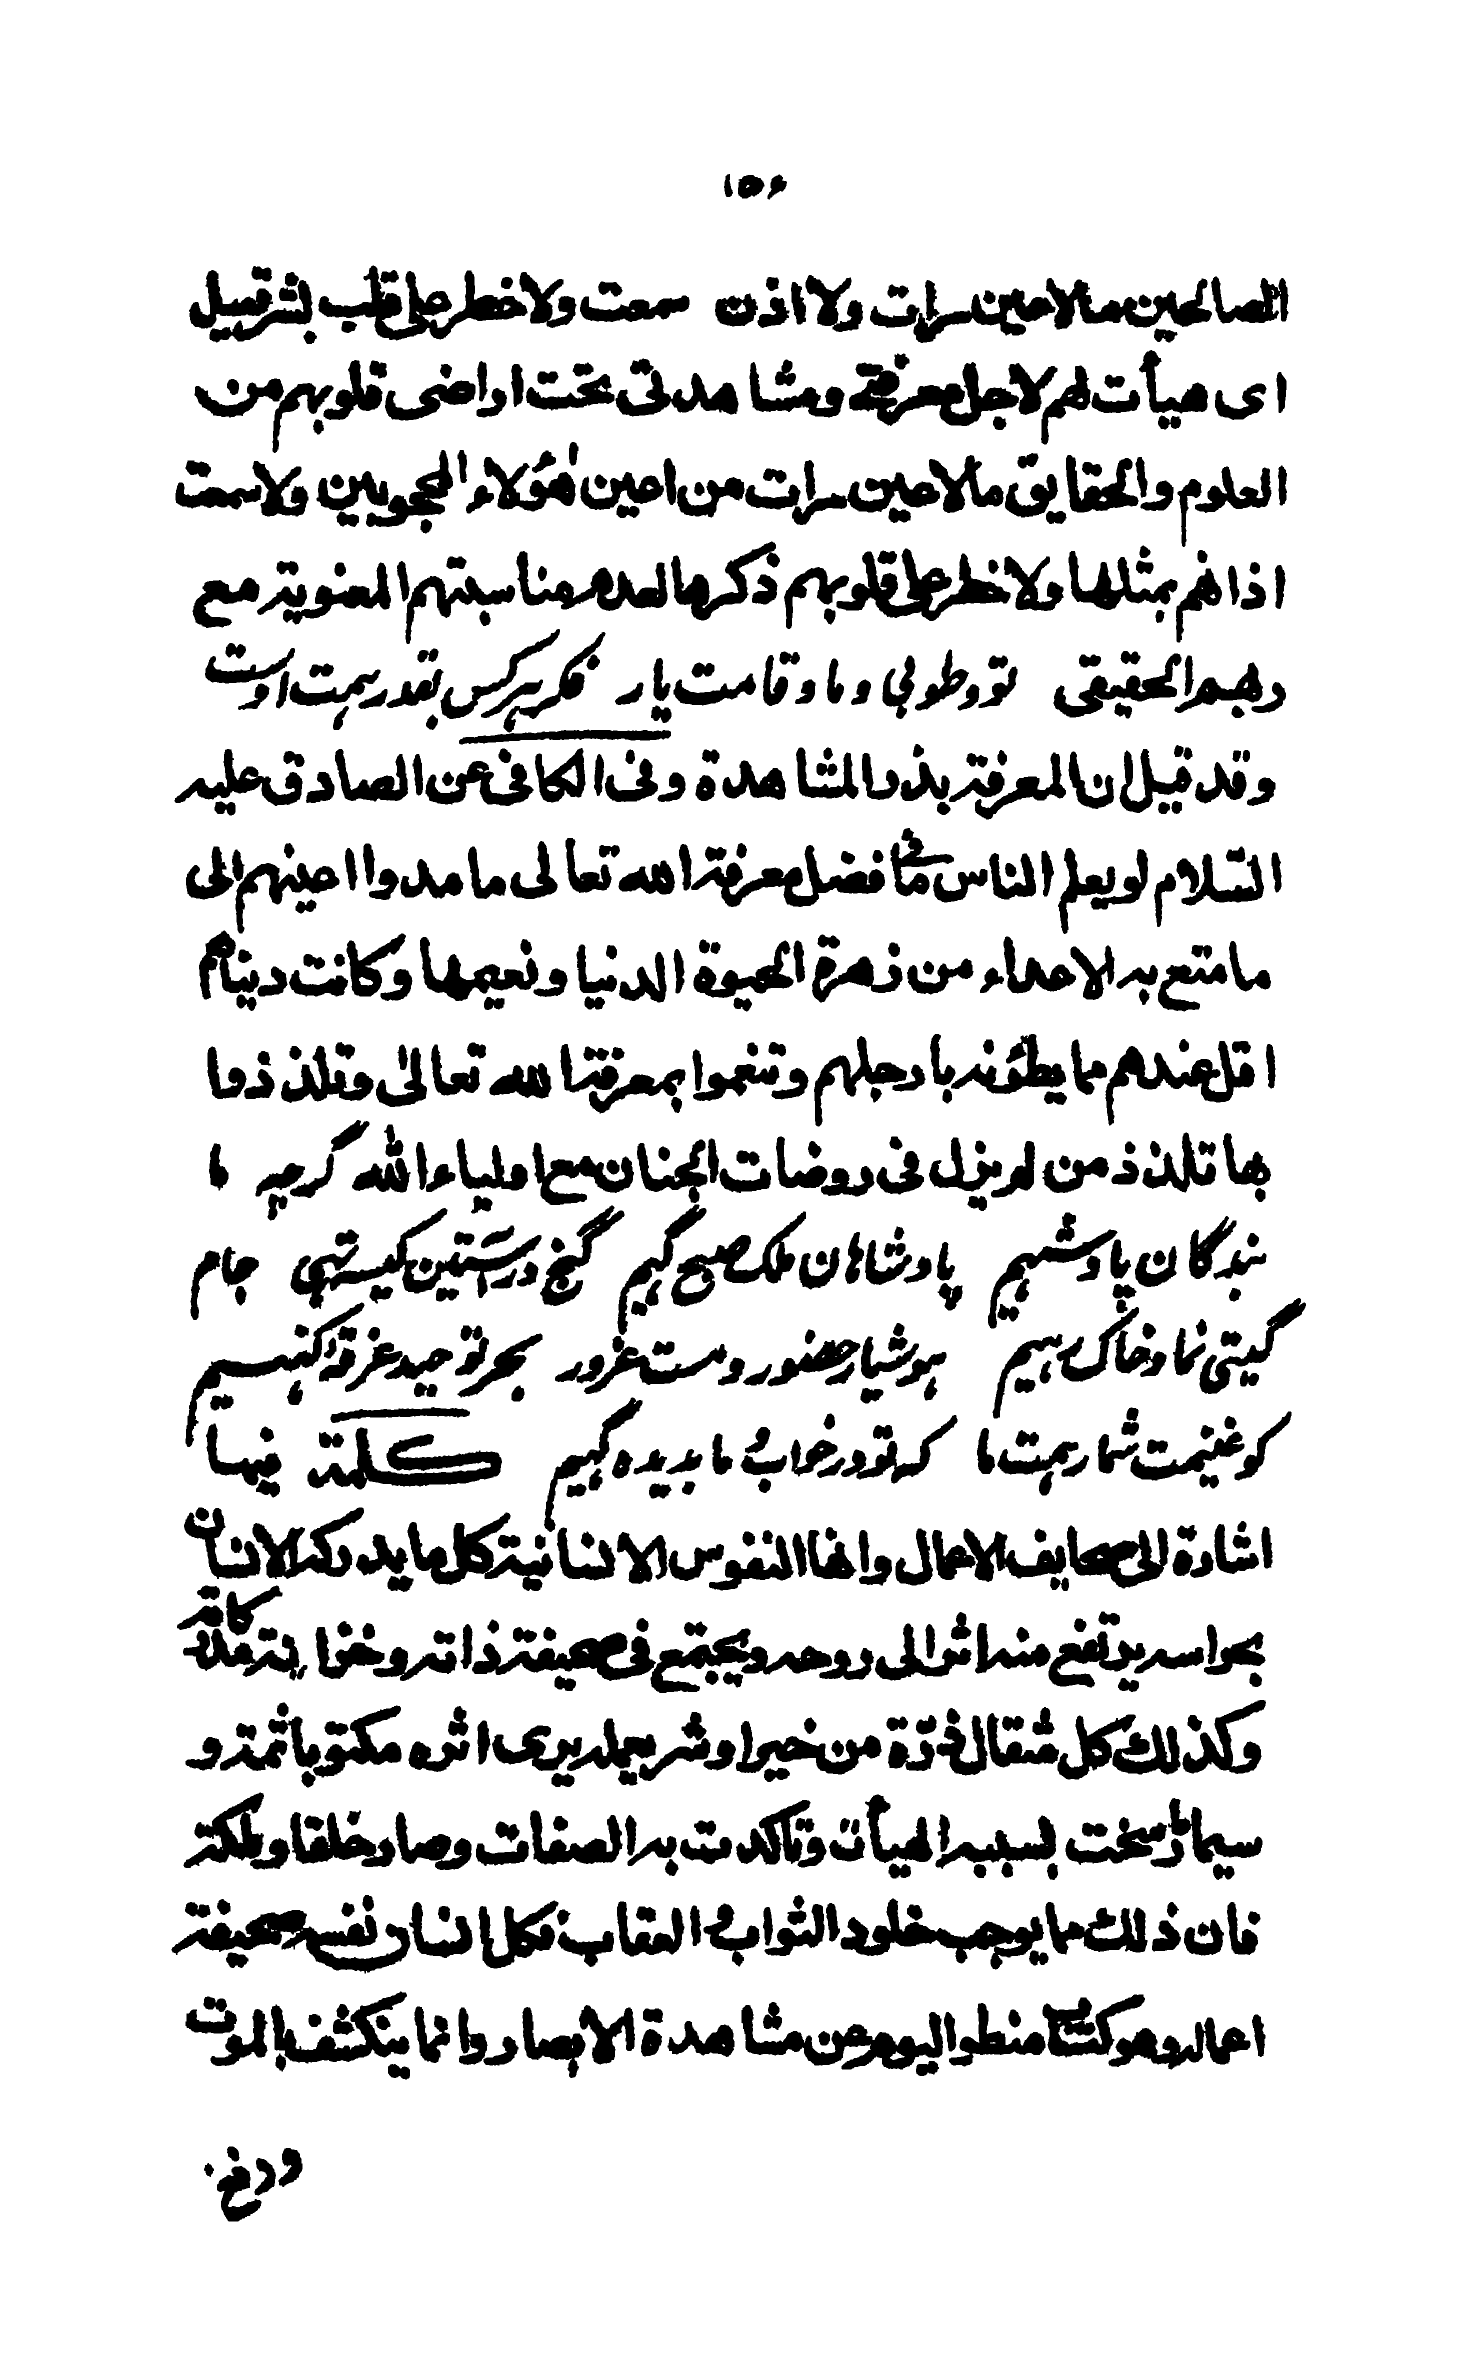 ١٥۶
الصالحين ما لا عين رات ولا اذن سمعت ولا خطر على قلب بشر قيل
اى هيأت لهم لاجل معرفتى ومشاهدتى تحت اراضى قلوبهم من
العلوم والحقايق ما لا عين رات من اعين هؤلاء المحجوبين ولا سمعت
اذانهم بمثلها ولا خطر على قلوبهم ذكرها لعدم مناسبتهم المعنوية مع
ربهم الحقيقى تو وطوبى وما وقامت يار فكر هركس بقدر همت اوست
وقد قيل ان المعرفة بذر المشاهدة وفى الكافى عن الصادق عليه
السّلام لو يعلم الناس ما فى فضل معرفة الله تعالى ما مدوا اعينهم الى
ما متع به الاعداء من زهرة الحيوة الدنيا ونعيمها وكانت دنياهم
اقل عندهم مما يطؤنه بارجلهم وتنعموا بمعرفة الله تعالى وتلذذوا
بها تلذذ من لم يزل فى روضات الجنان مع اولياء الله گرچه ما
بندگان پادشهيم پادشاهان ملك صبح گهيم گنج در آستين كيسه تهى جام
گيتى نما وخاك رهيم هوشيار حضور ومست غرور بحر توحيد غرقهٔ گنهيم
گو غنيمت شمار همت ما كه تو در خواب و ما بديده گهيم كلمة فيها
اشارة الى صحايف الاعمال وانها النفوس الانسانية كل ما يدركه الانسان
بحواسه يرتفع منه اثر الى روحه ويجتمع فى صحيفة ذاته وخزانة مدركاته
وكذلك كل مثقال ذرّة من خير او شر يعمله يرى اثره مكتوبا ثمة و
سيما ما رسخت بسببه الهيأت وتاكدت به الصفات وصار خلقا وملكة
فان ذلك مما يوجب خلود الثواب و العقاب فكل انسان نفسه صحيفة
اعماله وهو كتاب منطو اليوم عن مشاهدة الابصار وانما ينكشف بالموت
ورفع